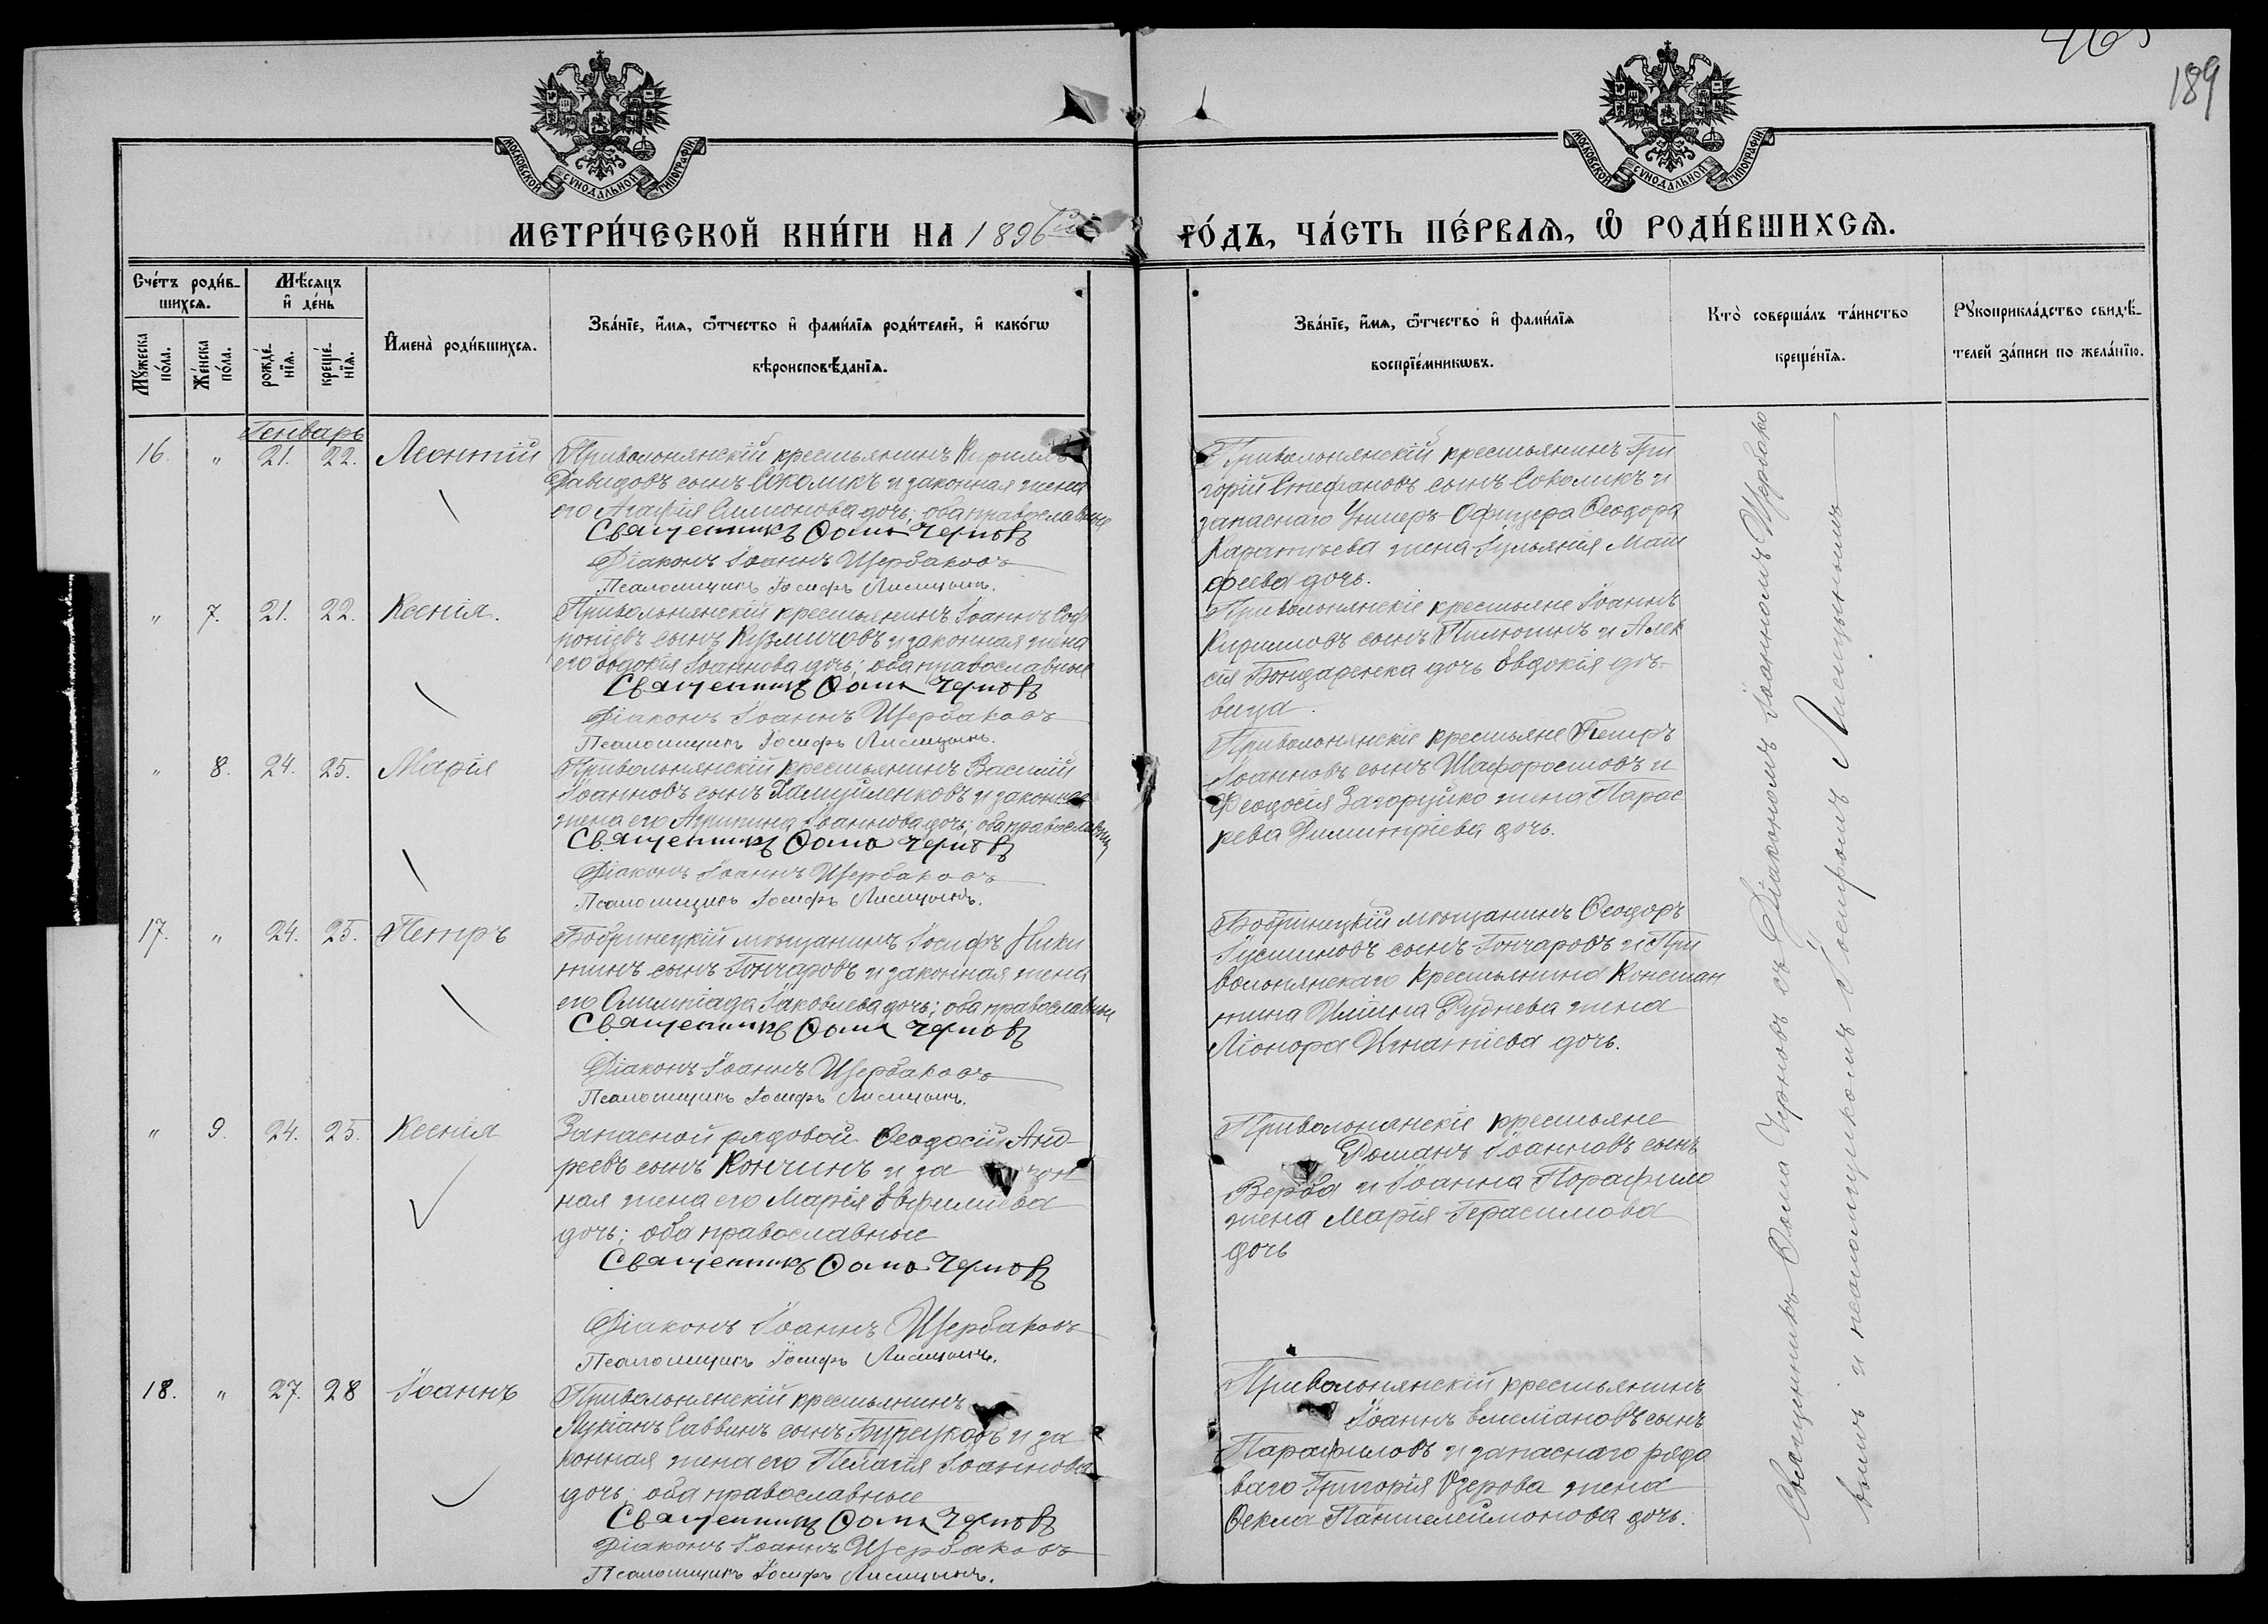 465
189
МОСКОВСКОЙ СУНОДАЛЬНОЙ ТИПОГРАФІИ
МОСКОВСКОЙ СУНОДАЛЬНОЙ ТИПОГРАФІИ
МЕТРИ́ЧЕСКОЙ КНИ́ГИ НА 1896 ГО́ДЪ, ЧА́СТЬ ПЕ́РВАѦ, Ѽ РОДИ́ВШИХСѦ.
Сче́тъ роди́в-
шихсѧ.
Мѣсѧцъ
и҆ де́нь
Мꙋ́жеска
по́ла.
Же́нска
по́ла.
рожде́-
нїѧ.
креще́-
нїѧ.
И҆мена̀ роди́вшихсѧ.
Зва́нїе, и҆́мѧ, ѻ҆́тчество и҆ фами́лїѧ роди́телей, и҆ како́гѡ
вѣроисповѣ́данїѧ.
Зва́нїе, и҆́мѧ, ѻ҆́тчество и҆ фами́лїѧ
воспрїе́мникѡвъ.
Кто̀ соверша́лъ та́инство
креще́нїѧ.
Рꙋкоприкла́дство свидѣ́-
телей за́писи по жела́нїю.
Генварь
16. " 21. 22. Леонтій
Привольнянскій крестьянинъ Кириллъ
Давидовъ сынъ Соколикъ и законная жена
его Агафія Симионова дочь; оба православные
Священникъ Ѳома Черновъ
Діаконъ Іоаннъ Щербаковъ
Псаломщикъ Іосифъ Лисицынъ.
Привольнянскій крестьянинъ Гри
горій Стефановъ сынъ Соколикъ и
запаснаго Унтеръ-Офицера Ѳеодора
жена Іульянія Мат
феева дочь.
" 7. 21. 22. Ксенія.
Привольнянскій крестьянинъ Іоаннъ Соф
роніевъ сынъ Кузмичовъ и законная жена
его Евдокія Іоаннова дочь; оба православные
Священникъ Ѳома Черновъ
Діаконъ Іоаннъ Щербаковъ
Псаломщикъ Іосифъ Лисицынъ.
Привольнянскіе крестьяне Іоаннъ
Кирилловъ сынъ и Алек
сія Бондаренка дочь Евдокія дѣ-
вица.
" 8. 24. 25. Марія
Привольнянскій крестьянинъ Василій
Іоанновъ сынъ и законная
жена его Агрипина Іоаннова дочь; оба православные
Священникъ Ѳома Черновъ
Діаконъ Іоаннъ Щербаковъ
Псаломщикъ Іосифъ Лисицынъ.
Привольнянскіе крестьяне Петръ
Іоанновъ сынъ Шафоростовъ и
Феодосія Загоруйко жена Парас
кева Димитріева дочь.
17. " 24. 25. Петръ
Бобринецкій мѣщанинъ Іосифъ Ники
тинъ сынъ Гончаровъ и законная жена
его Олимпіада Іаковлева дочь; оба православные
Священникъ Ѳома Черновъ
Діаконъ Іоаннъ Щербаковъ
Псаломщикъ Іосифъ Лисицынъ.
Бобринецкій мѣщанинъ Ѳеодоръ
Іустиновъ сынъ Гончаровъ и При
вольнянскаго крестьянина Констан
тина Руднева жена
Ліонора Игнатіева дочь.
" 9. 24. 25. Ксенія
Запасной рядовой Ѳеодосій Анд-
реевъ сынъ Кончинъ и за кон
ная жена его Марія Евфиміева
дочь; оба православные
Священникъ Ѳома Черновъ
Діаконъ Іоаннъ Щербаковъ
Псаломщикъ Іосифъ Лисицынъ.
Привольнянскіе крестьяне
Романъ Іоанновъ сынъ
Верба и Іоанна
жена Марія Герасимова
дочь
18. " 27. 28 Іоаннъ
Привольнянскій крестьянинъ
Лукіанъ Саввинъ сынъ и за
конная жена его Пелагія Іоаннова
дочь; оба православные
Священникъ Ѳома Черновъ
Діаконъ Іоаннъ Щербаковъ
Псаломщикъ Іосифъ Лисицынъ.
Привольнянскій крестьянинъ
Іоаннъ сынъ
Парафиловъ и запаснаго рядо
ваго Григорія Озерова жена
Ѳекла Пантелеймонова дочь.
Священникъ Ѳома Черновъ съ Діакономъ Іоанномъ Щербако
вымъ и псаломщикомъ Іосифомъ Лисицынымъ